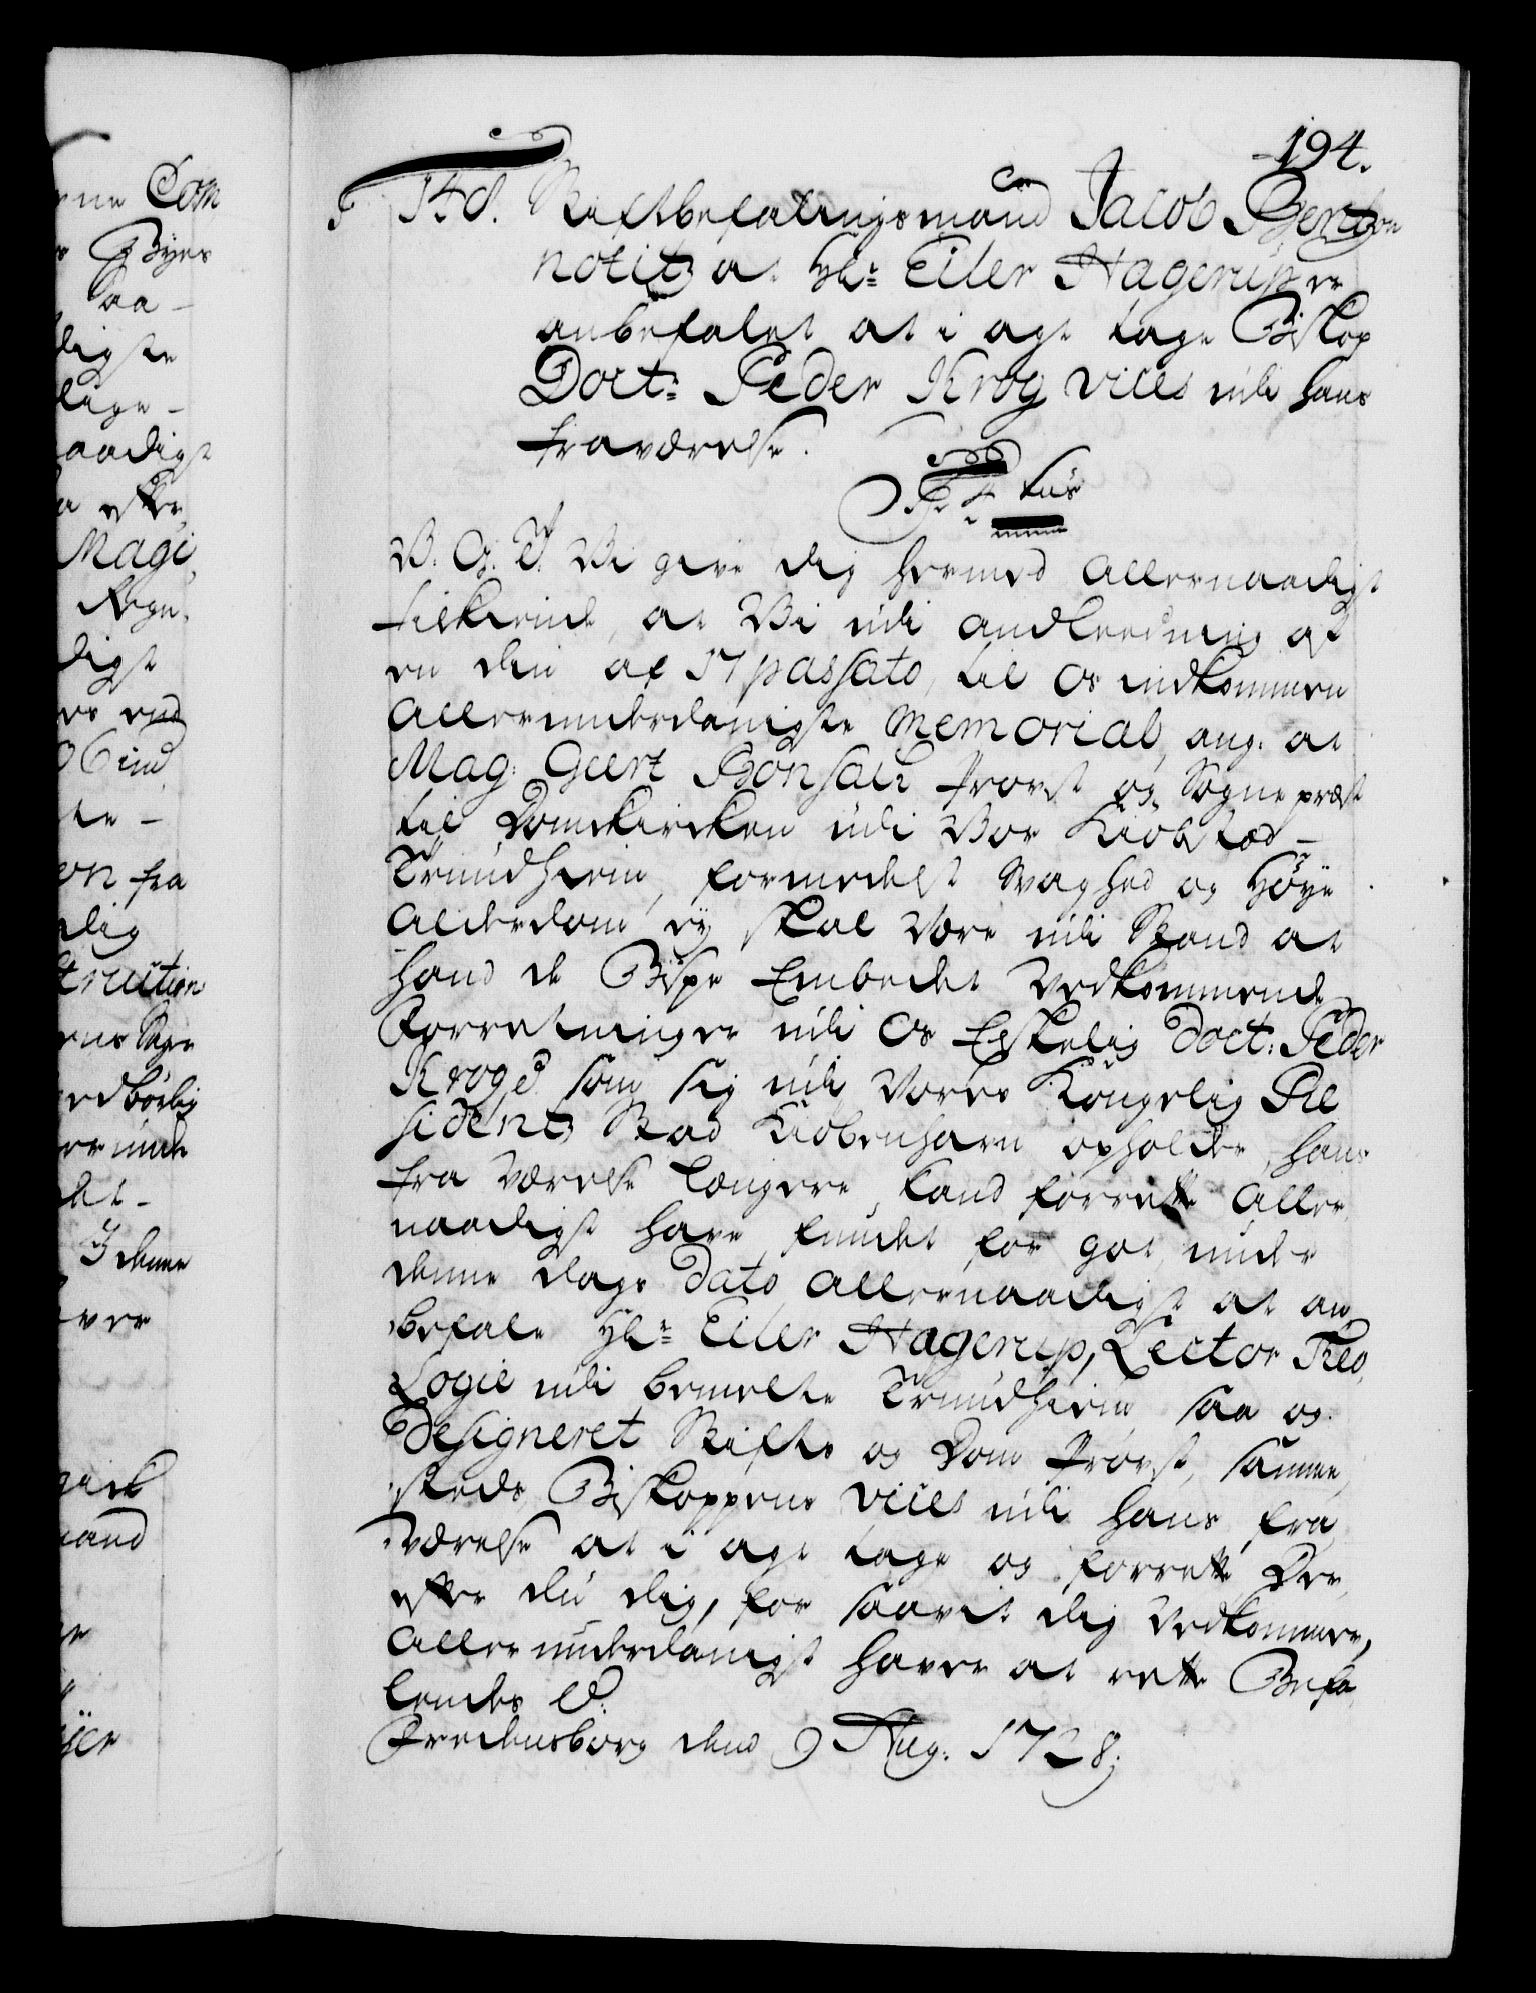 194.
148. Stiftbefalingsmand Jacob Bentzon
notitz at Hr: Eiler Hagerup er
anbefalet at i agt tage Biskop
Doct: Peder Krog vices udi hans
fraværelse.
F: 4 tus
V. G. T. Vi give dig hermed Allernaadigst
tilkiende, at Vi udi andleedning af
en din af 17 passato, til Os indkommen
Allerunderdanigste Memorial, ang: at
Mag: Geert Bonsach Provst og Sognepræst
til Domkircken udi Vor Kiøbstæd
Trundhiem, formedelst Svaghed og Høye
Alderdom ey skal være udi Stand at
hand de Bispe Embedet Vedkommende
Forretninger udi Os Elskelig Doct: Peder
Krogs som sig udi Vores Kongelig Re
sidentz Stad Kiøbenhavn opholder, hans
fra Værelse længere kand forrette Aller
naadigst have fundet for got under
denne Dags Dato Allernaadigst at an
befale Hr: Eiler Hagerup, Lector Theo
Logiæ udi bemelte Trundhiem saa og
Designeret Stifts og Dom Provst, samme
steds, Biskoppens Vices udi hans fra
værelse at i agt tage og forrette Der
efter du dig, for saavit dig Vedkommer,
Allerunderdanigst haver at rette Befa
lendes V:
Fredensborg dend 9 Aug. 1728;